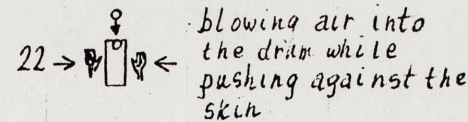 blowing air into
22 → ← the drum while
pushing against the
skin